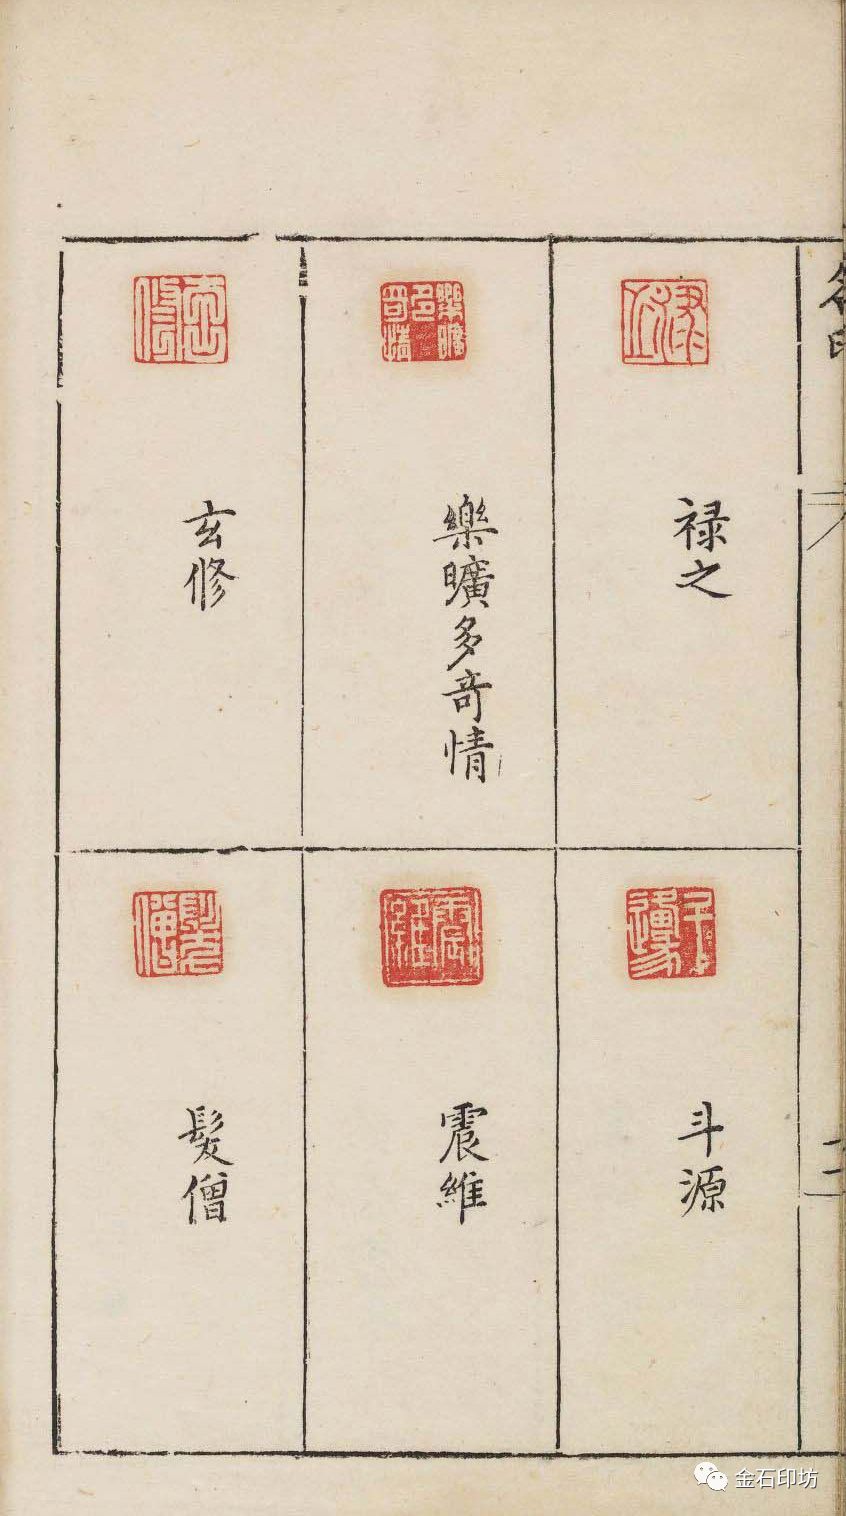 禄之
樂曠多竒情
玄修
斗源
震維
髮僧
金石印坊